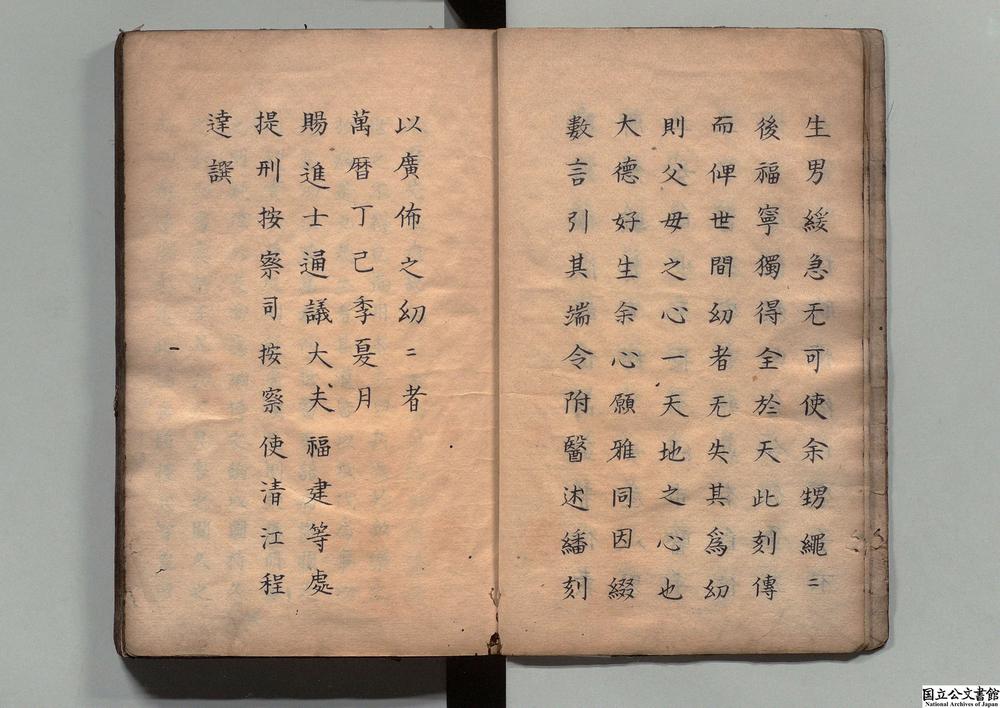 生男緩急无可使余甥繩〻
後福寧獨得全於天此刻傳
而俾世間幼者无失其爲幼
則父毋之心一天地之心也
大德好生余心願雅同因綴
數言引其端令附醫述繙刻
以廣佈之幼〻者
萬曆丁己季夏月
賜進士通議大夫福建等處
提刑按察司按察使清江程
達譔
国立公文書館
National Archives of Japan